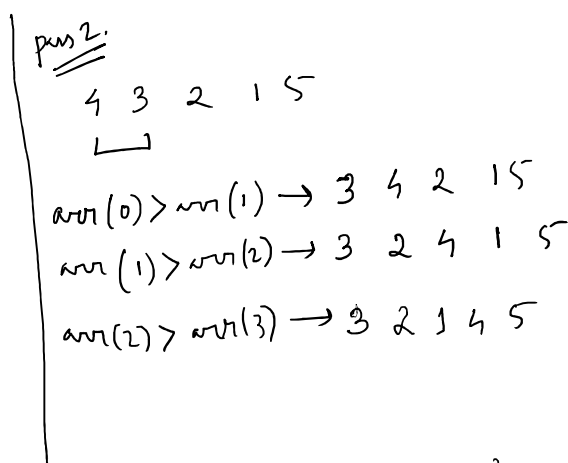 pass 2.
4 3 2 1 5
arr(0) > arr(1) → 3 4 2 1 5
arr(1) > arr(2) → 3 2 4 1 5
arr(2) > arr(3) → 3 2 1 4 5